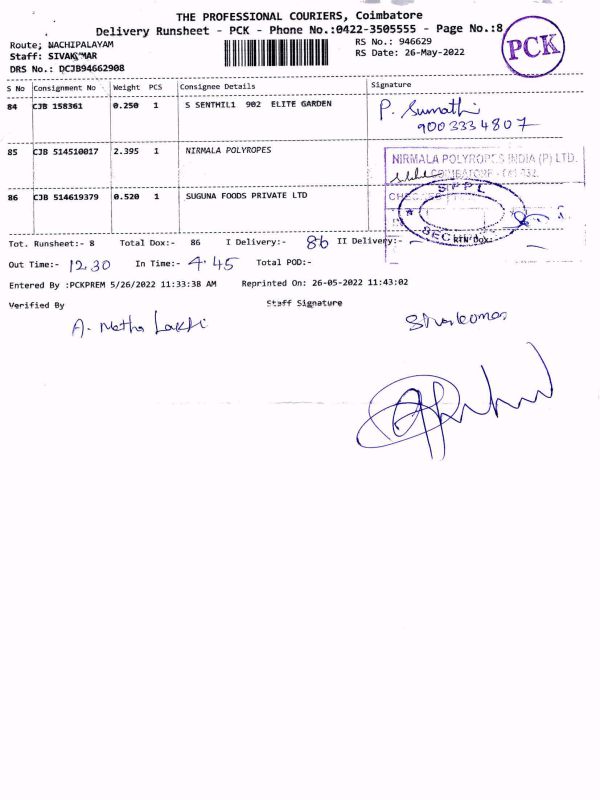 THE PROFESSIONAL COURIERS, Coimbatore
Delivery Runsheet - PCK - Phone No.:0422-3505555 - Page No.:8
Route; NACHIPALAYAM RS No.: 946629
Staff: SIVAKUMAR RS Date: 26-May-2022
DRS No.: DCJB94662908
PCK
S No Consignment No Weight PCS Consignee Details Signature
84 CJB 158361 0.250 1 S SENTHIL1 902 ELITE GARDEN P. Sumathi
9003334807
85 CJB 514510017 2.395 1 NIRMALA POLYROPES
NIRMALA POLYROPES INDIA (P) LTD.
COIMBATORE - 641 032.
86 CJB 514619379 0.520 1 SUGUNA FOODS PRIVATE LTD
SPPL
Tot. Runsheet:- 8 Total Dox:- 86 I Delivery:- 86 II Delivery:- RTN Dox:-
Out Time:- 12.30 In Time:- 4.45 Total POD:-
Entered By :PCKPREM 5/26/2022 11:33:38 AM Reprinted On: 26-05-2022 11:43:02
Verified By Staff Signature
Sivakumar